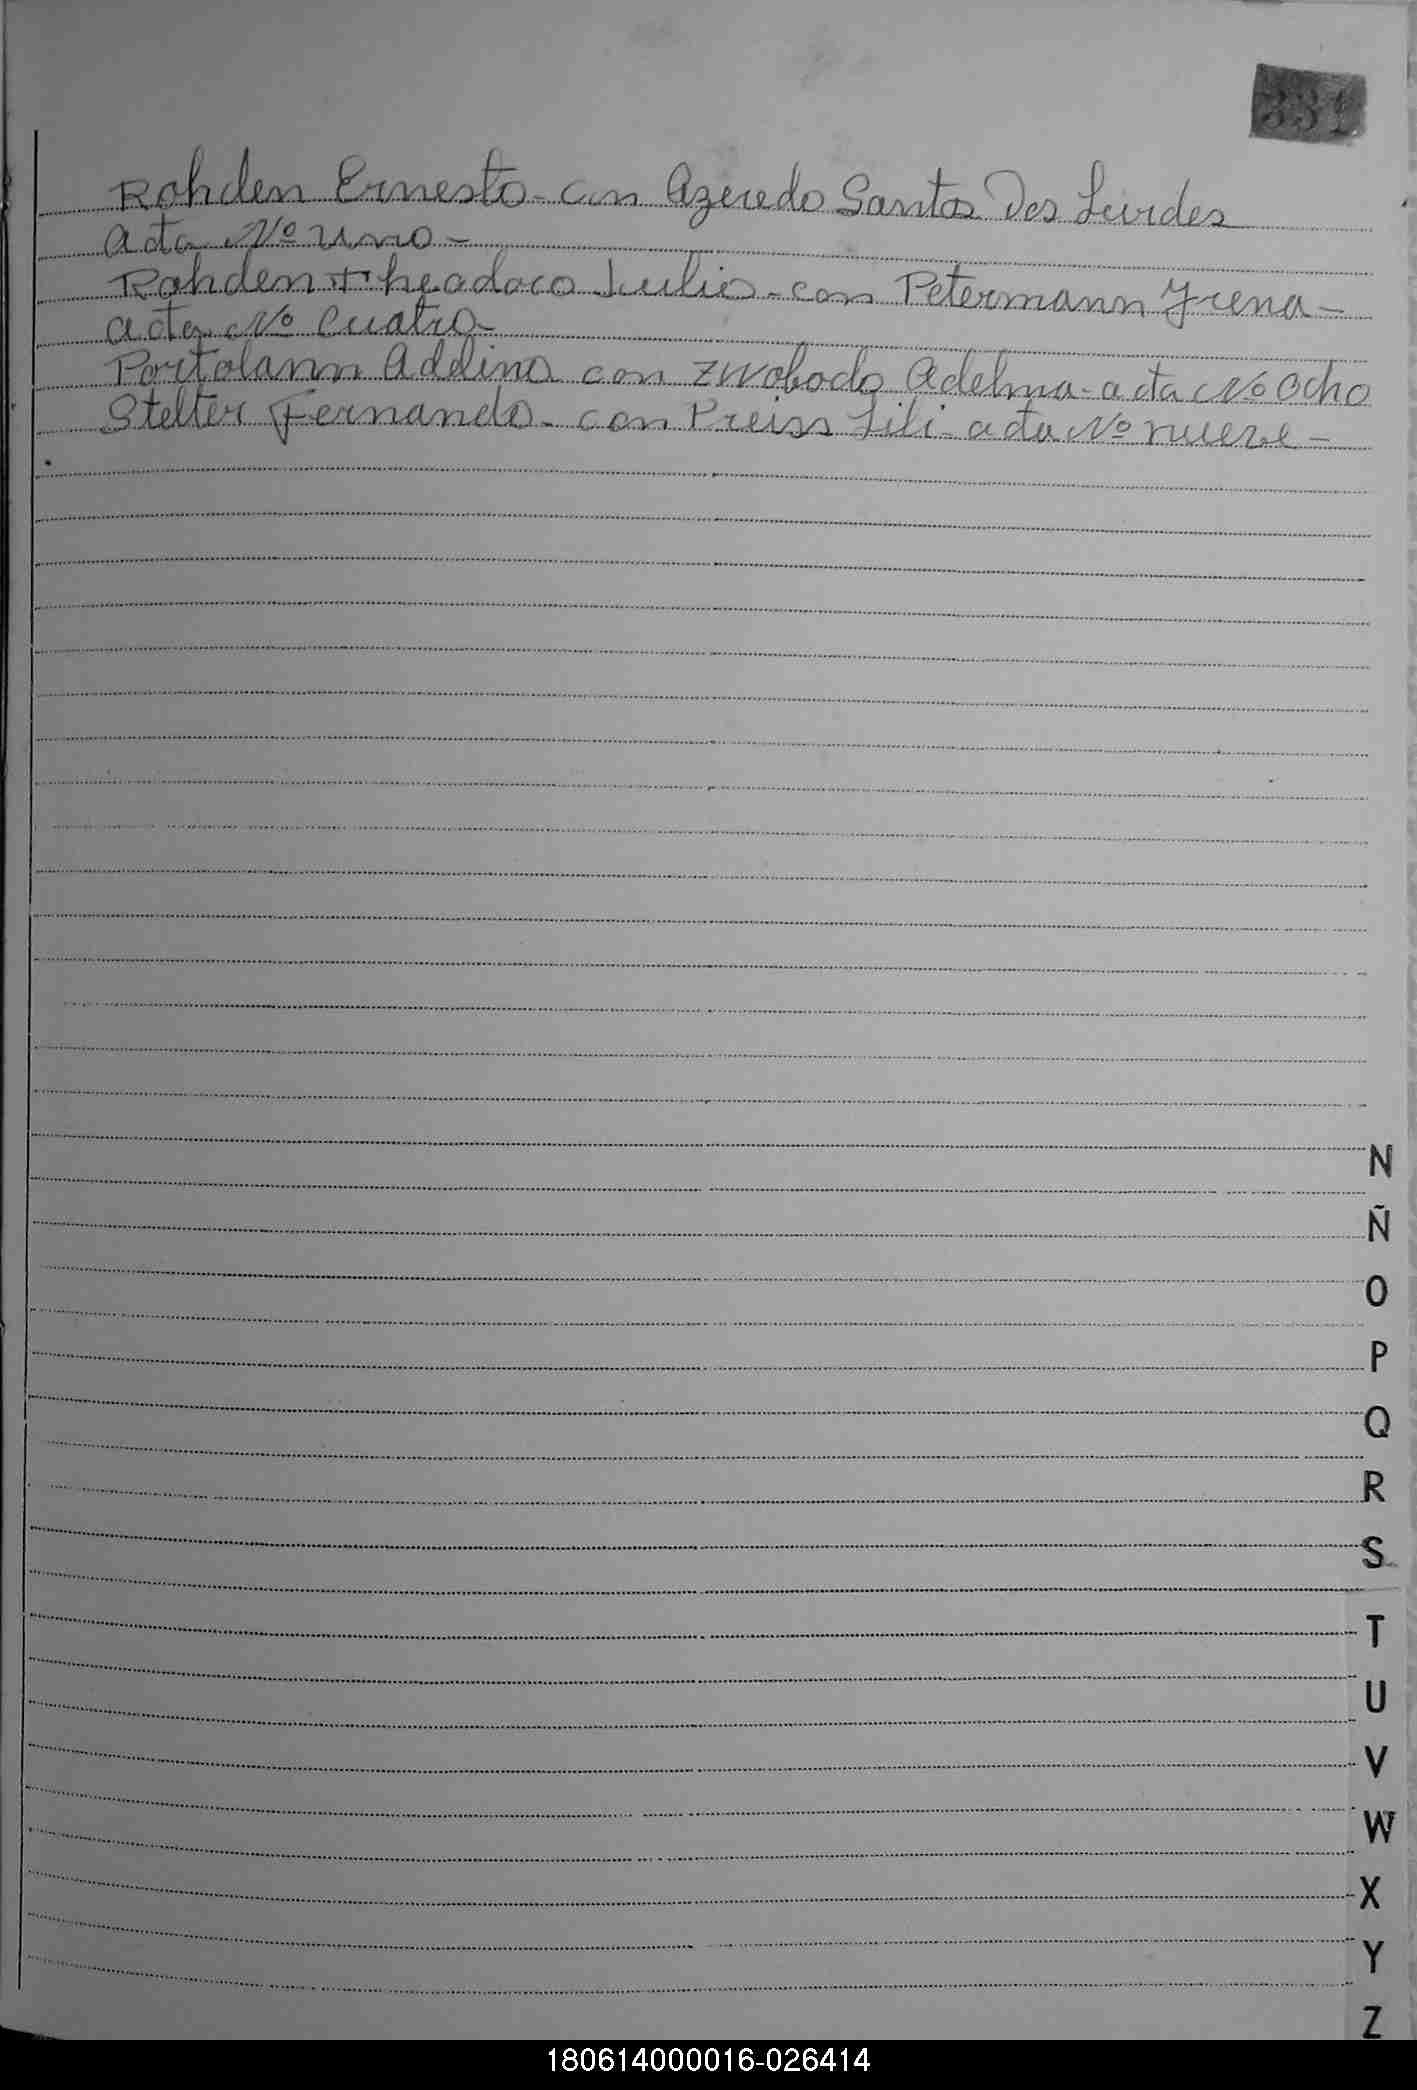 331
Rohden Ernesto - con Azeredo Santos Dos Lurdes
acta Nº uno -
Rohden Theodoro Julio - con Petermann Yrena -
acta Nº cuatro -
Portolann Addino con Zwobodo Adelma - acta Nº Ocho
Stelter Fernando - con Preiss Lili - acta Nº nueve -
N
Ñ
O
P
Q
R
S
T
U
V
W
X
Y
Z
180614000016-026414